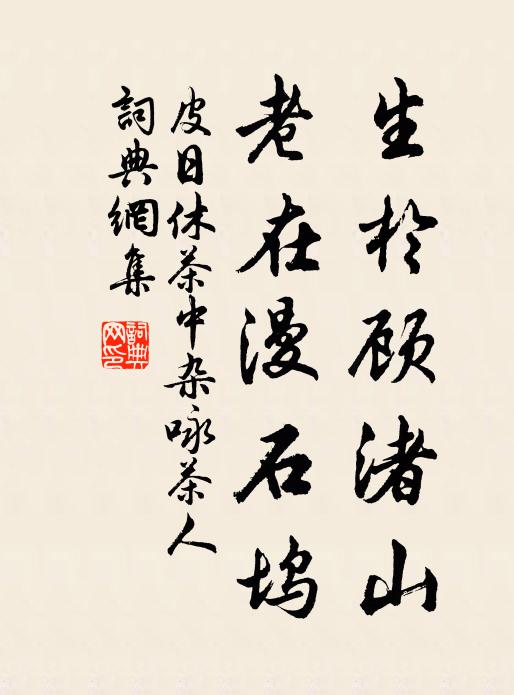 生於顾渚山
老在漫石坞
皮日休茶中杂咏茶人
詞典網集
詞典网印